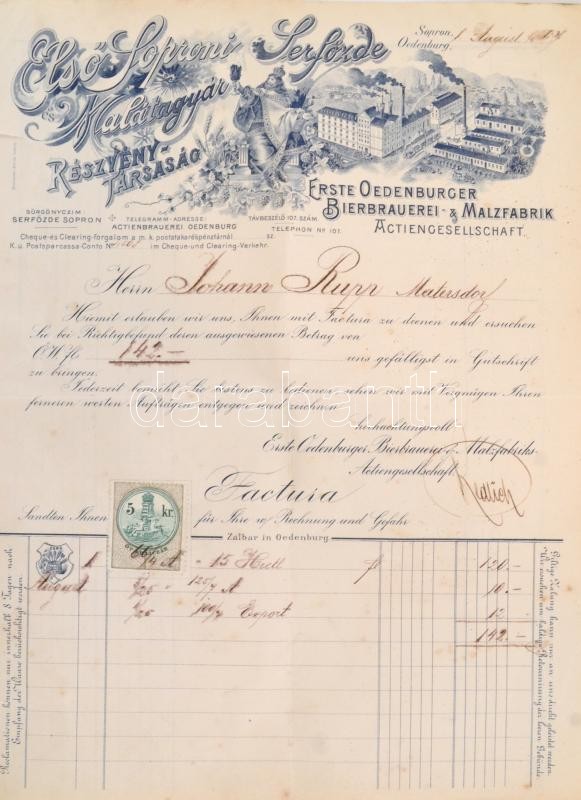 Első Soproni Serfőzde
és Malátagyár
RÉSZVÉNY-
TÁRSASÁG
Sopron,
Oedenburg, 1 August
ERSTE OEDENBURGER
BIERBRAUEREI- & MALZFABRIK
ACTIENGESELLSCHAFT.
SÜRGÖNYCZIM
SERFŐZDE SOPRON
TELEGRAMM-ADRESSE:
ACTIENBRAUEREI OEDENBURG
TÁVBESZÉLŐ 107. SZÁM.
TELEPHON No 107.
Cheque-és Clearing-forgalom a m. k. postatakarékpénztárnál sz.
K. u. Postsparcassa-Conto No im Cheque-und Clearing-Verkehr.
Herrn Johann Rupp Matersdorf
Hiemit erlauben wir uns, Ihnen mit Factura zu dienen und ersuchen
Sie bei Richtigbefund deren ausgewiesenen Betrag von
Ö.W.fl. 142.— uns gefälligst in Gutschrift
zu bringen.
Jederzeit bemüht Sie bestens zu bedienen, sehen wir mit Vergnügen Ihren
ferneren werten Aufträgen entgegen und zeichnen
hochachtungsvoll
Erste Oedenburger Bierbrauerei & Malzfabriks-
Actiengesellschaft
Factura
Sandten Ihnen für Ihre w/ Rechnung und Gefahr
Zalbar in Oedenburg
5 kr.
1 6/4 A - 15 Hectl fl 120.—
August 5/25 - 125/4 A 10.—
4/25 100/4 Export 12.—
142.—
Reclamationen können nur innerhalb 8 Tagen nach
Empfang der Waare berücksichtigt werden.
Giltige Zalung kann nur an uns direkt geleistet werden.
Wir ersuchen um baldige Retournirung der leeren Gebinde.
darabanth